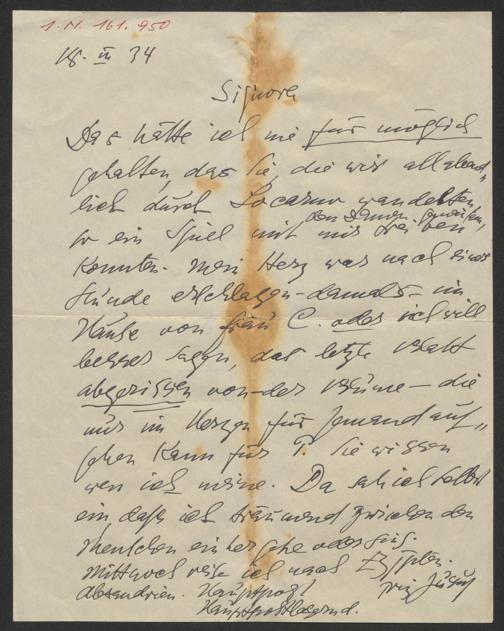 I.N. 161.950
18. III 34
Signora
Das hätte ich nie für möglich
gehalten, das Sie, die wir allabend„
lich durch Locarno wandelten
den Damen
so ein Spiel mit mir
konnten. Mein Herz war nach einer
Stunde erschlagen – damals – im
Hause von Frau C. oder ich will
besser sagen, das letzte Blatt
abgerissen von der Blume – die
nur im Herzen für Jemand auf„
gehen kann für T. Sie wissen
wen ich meine. Da sah ich selbst
ein, daß ich träumend zwischen den
Menschen einher gehe oder
Mittwoch reise ich nach Egypten.
Alexandrien. Hauptpost!
Hauptpostlagernd.
Prinz Jussuf